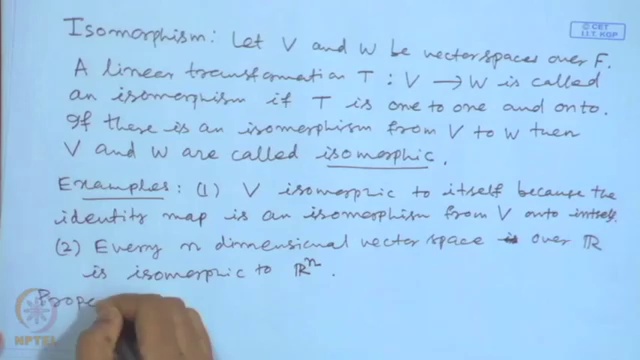 Isomorphism: Let V and W be vector spaces over F.
© CET
I.I.T. KGP
A linear transformation T : V → W is called
an isomorphism if T is one to one and onto.
If there is an isomorphism from V to W then
V and W are called isomorphic.
Examples: (1) V isomorphic to itself because the
identity map is an isomorphism from V onto intself.
(2) Every n dimensional vector space over ℝ
is isomorphic to ℝⁿ.
Prope
NPTEL